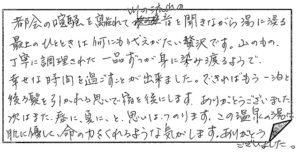 都会の喧騒を離れて川の流れの音を聞きながら湯に浸る
最上のひとときは何にもかえがたい贅沢です。山のもの、
丁寧に調理された一品ずつが身に染み渡るようで、
幸せな時間を過ごすことが出来ました。できればもう一泊と
後ろ髪を引かれる思いで宿を後にします。ありがとうございました。
次はまた、春に、夏に、と、思いはつのります。この温泉の湯は
肌に優しく、命の力をくれるような気がします。ありがとう
ございました。